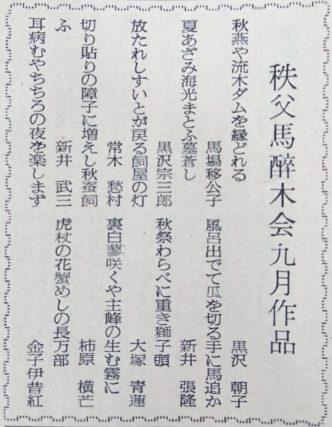 秩父馬醉木会九月作品
秋燕や流木ダムを縁どれる
馬場移公子
夏あざみ海光まとふ墓蒼し
黒沢宗三郎
放たれしすいとが戻る飼屋の灯
常木 愁村
切り貼りの障子に増えし秋蚕飼
ふ 新井 武三
耳病むやちちろの夜を楽しまず
黒沢 朝子
風呂出でて瓜を切る手に馬追か
新井 張隆
秋祭わらべに重き獅子頭
大塚 青蓮
裏白蓼咲くや主峰の生む霧に
柿原 横芒
虎杖の花蟹めしの長万部
金子伊昔紅